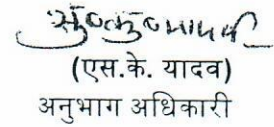 (एस.के. यादव)
अनुभाग अधिकारी